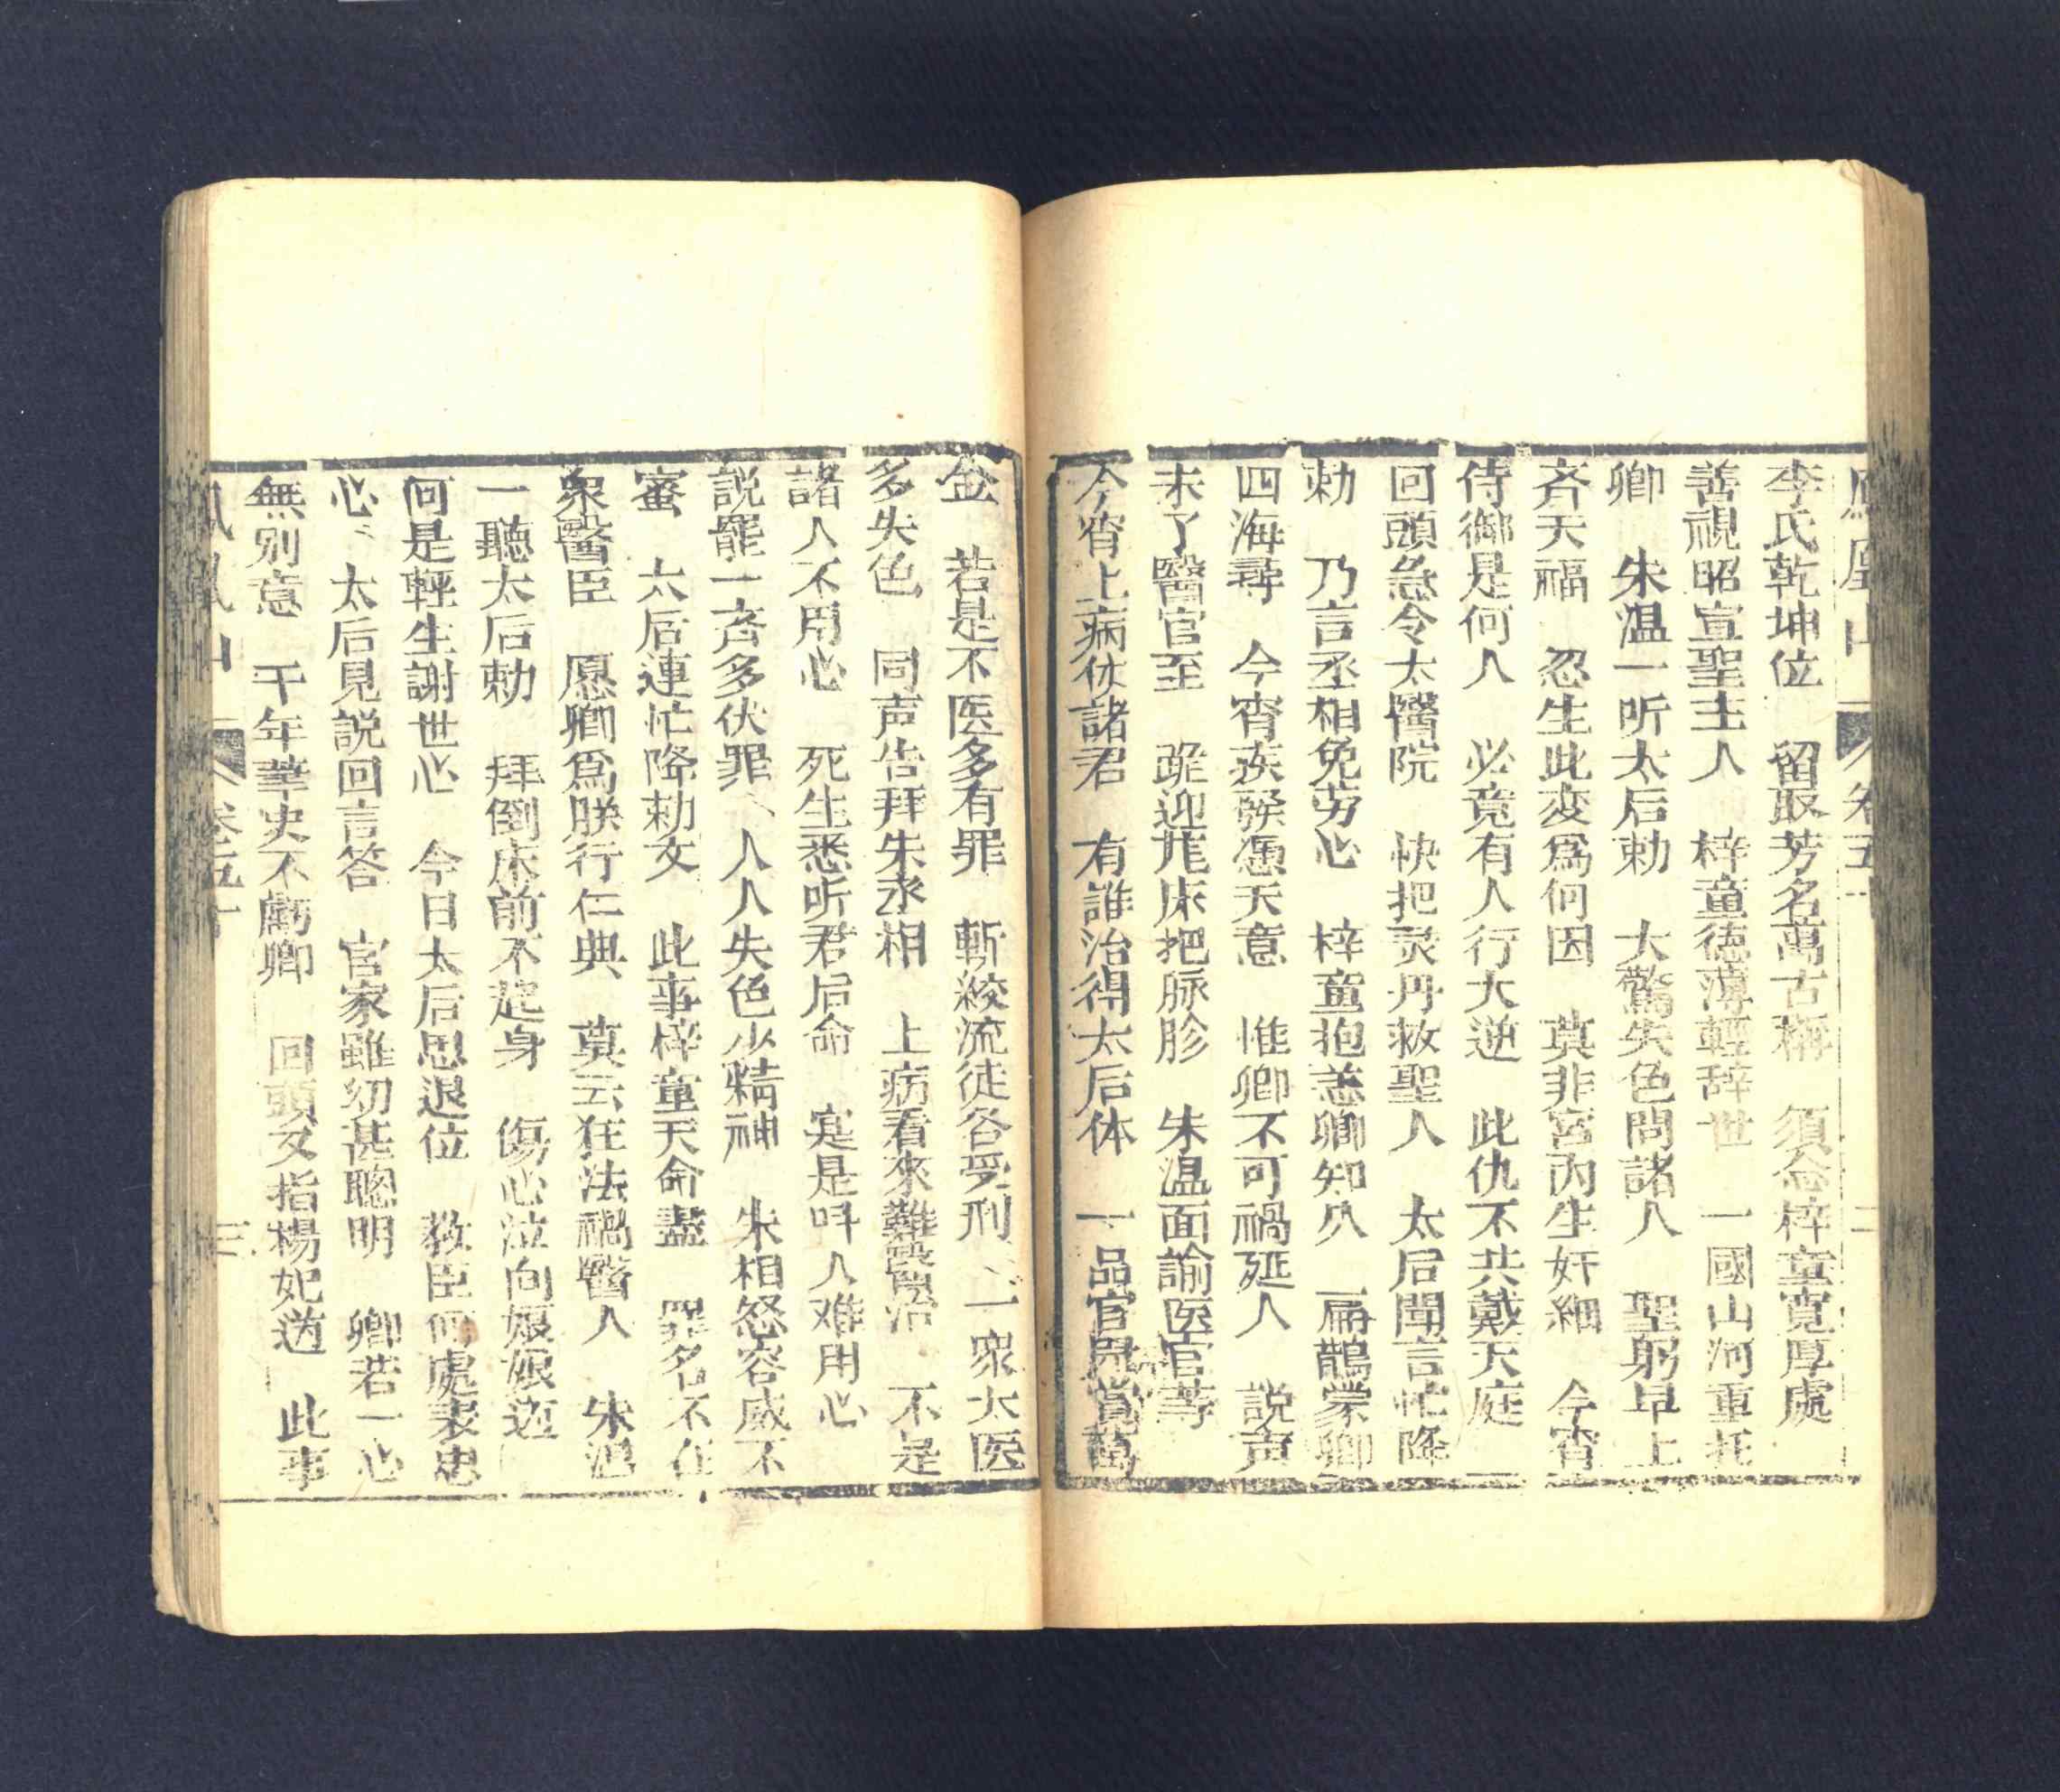 鳳凰山 卷五十 二
李氏乾坤位 留取芳名萬古稱 須念梓童寬厚處
善視昭宣聖主人 梓童德薄輕辞世 一國山河重托
卿 朱温一听太后勅 大驚失色問諸人 聖躬早上
斉天福 忍生此变爲何因 莫非宮内生奸細 今宵
侍御是何人 必竟有人行大逆 此仇不共戴天庭
回頭急令太醫院 快把灵丹救聖人 太后聞言忙降
勅 乃言丞相免劳心 梓童抱恙卿知久 扁鵲蒙卿
四海尋 今宵疾發慿天意 惟卿不可禍延人 説声
未了醫官至 跪迎龙床把脉胗 朱温面諭医官等
今宵上病仗諸君 有誰治得太后体 一品官居賞萬
金 若是不医多有罪 斬絞流徒各受刑 一衆太医
多失色 同声告拜朱丞相 上病看來難醫治 不是
諸人不用心 死生悉听君后命 寔是吽人难用心
説罷一斉多伏罪 人人失色少精神 朱相怒容威不
蜜 太后連忙降勅文 此事梓童天命盡 罪名不在
衆醫臣 愿卿爲朕行仁典 莫云狂法禍醫人 朱温
一聽太后勅 拜倒床前不起身 傷心泣向娘娘道
何是輕生謝世心 今日太后思退位 教臣何處表忠
心 太后見説回言答 官家雖幼甚聰明 卿若一心
無别意 千年華史不虧卿 回頭又指楊妃道 此事
鳳凰山 卷五十 三